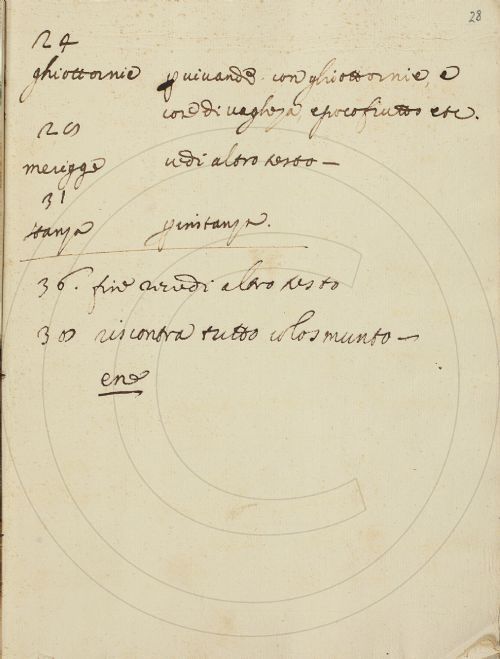 28
24
ghiottornie p vivande con ghiottornie, e
cose di vaghesa e poco frutto etc.
28
merigge vedi altro testo —
31
stanza p instanza.
36. fin revedi altro testo
38 riscontra tutto
ene